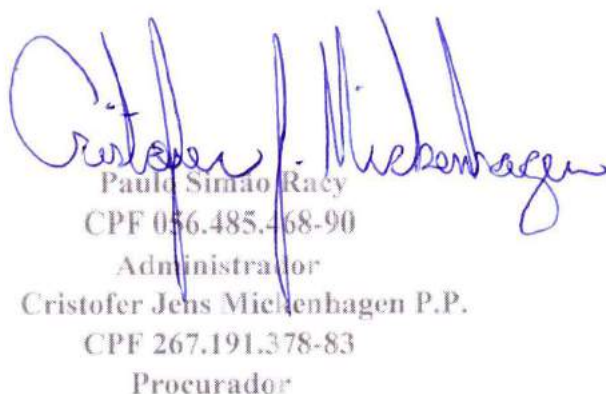 Cristofer J. Mickenhagen
Paulo Simão Racy
CPF 056.485.468-90
Administrador
Cristofer Jens Mickenhagen P.P.
CPF 267.191.378-83
Procurador